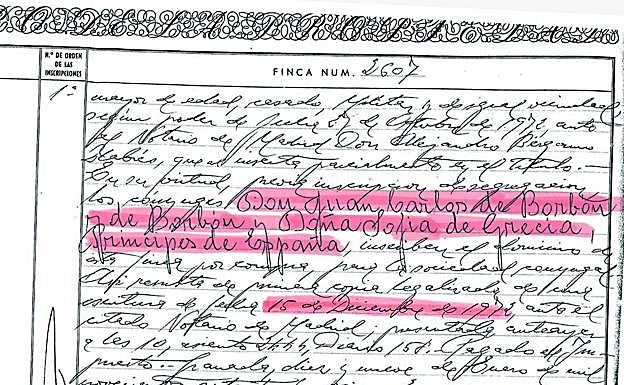 N.º DE ORDEN
DE LAS
INSCRIPCIONES
FINCA NUM. 2607
1ª
mayor de edad, casado, Militar y de igual vecindad,
según poder de fecha de Octubre de 1972, ante
el Notario de Madrid Don Alejandro Bérgamo
Llabrés, que se inserta parcialmente en el título.—
En su virtud, previa inscripción de segregación
los cónyuges, Don Juan Carlos de Borbón
y de Borbón y Doña Sofía de Grecia
Príncipes de España, inscriben el dominio de
esta finca por compra, para su sociedad conyugal.
Así resulta de primera copia legalizada de una
escritura de fecha 15 de Diciembre de 1972, ante el
citado Notario de Madrid, presentada anteayer
a las 10, asiento Diario 158. Pagado el Im-
puesto.— Granada, diez y nueve de Enero de mil
novecientos setenta